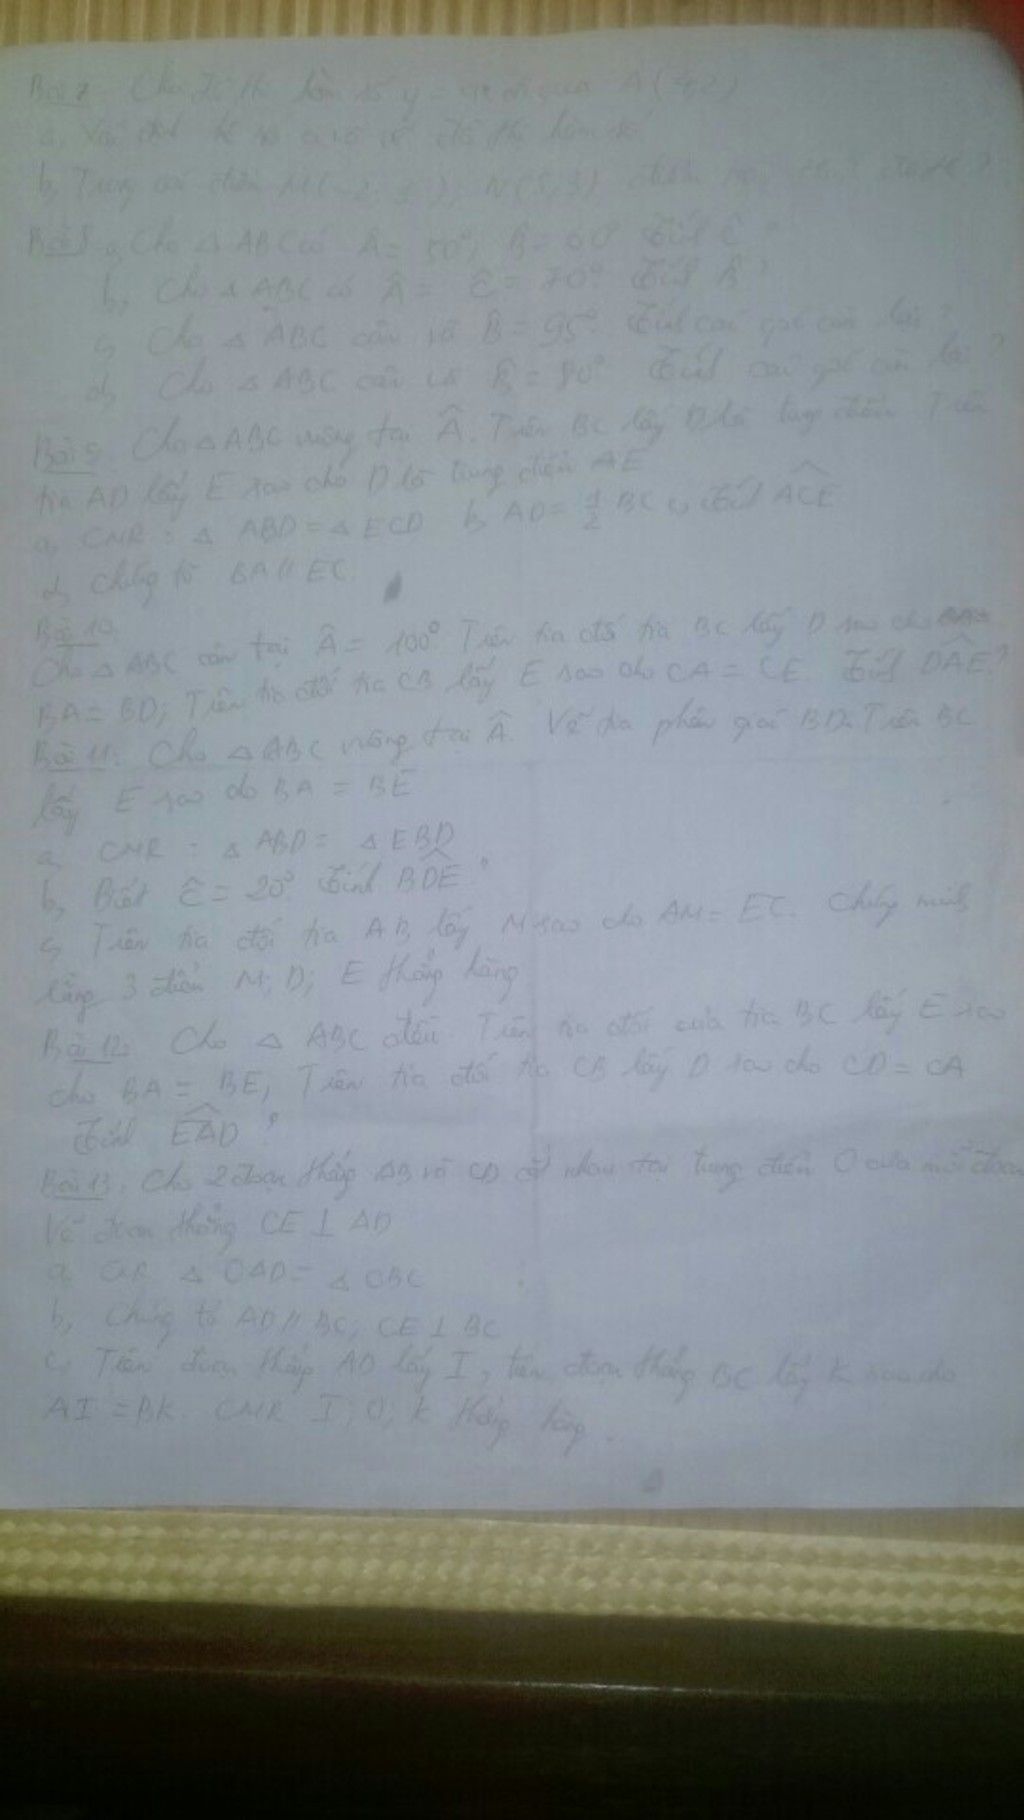 Bài 7 Cho đồ thị hàm số y = ax đi qua A(
a, Xác định hệ số a và vẽ đồ thị hàm số
b, Trong các điểm M(-2; 1); N( ;3) điểm
Bài 8 a, Cho △ ABC có Â = 50°; B̂ = 60° Tính Ĉ ?
b, Cho △ ABC có Â = Ĉ = 70° Tính B̂ ?
c, Cho △ ABC cân và B̂ = 95° Tính các góc còn lại ?
d, Cho △ ABC cân có B̂ = 80° Tính các góc còn lại ?
Bài 9 Cho △ ABC vuông tại Â. Trên BC lấy D là trung điểm Trên
tia AD lấy E sao cho D là trung điểm AE
a, CMR : △ ABD = △ ECD b, AD = 1/2 BC c, Tính ACE
d, Chứng tỏ BA // EC.
Bài 10
Cho △ ABC cân tại Â = 100° Trên tia đối tia BC lấy D sao cho
BA = BD; Trên tia đối tia CB lấy E sao cho CA = CE. Tính DAE ?
Bài 11: Cho △ ABC vuông tại Â. Vẽ tia phân giác BD. Trên BC
lấy E sao cho BA = BE
a, CMR : △ ABD = △ EBD
b, Biết Ĉ = 20° Tính BDE ?
c, Trên tia đối tia AB lấy M sao cho AM = EC. Chứng minh
rằng 3 điểm M; D; E thẳng hàng
Bài 12: Cho △ ABC đều. Trên tia đối của tia BC lấy E sao
cho BA = BE; Trên tia đối tia CB lấy D sao cho CD = CA
Tính EAD ?
Bài 13: Cho 2 đoạn thẳng AB và CD cắt nhau tại trung điểm O của mỗi đoạn
Vẽ đoạn thẳng CE ⊥ AD
a, CMR △ OAD = △ OBC
b, Chứng tỏ AD // BC; CE ⊥ BC
c, Trên đoạn thẳng AD lấy I, trên đoạn thẳng BC lấy K sao cho
AI = BK. CMR I; O; K thẳng hàng.